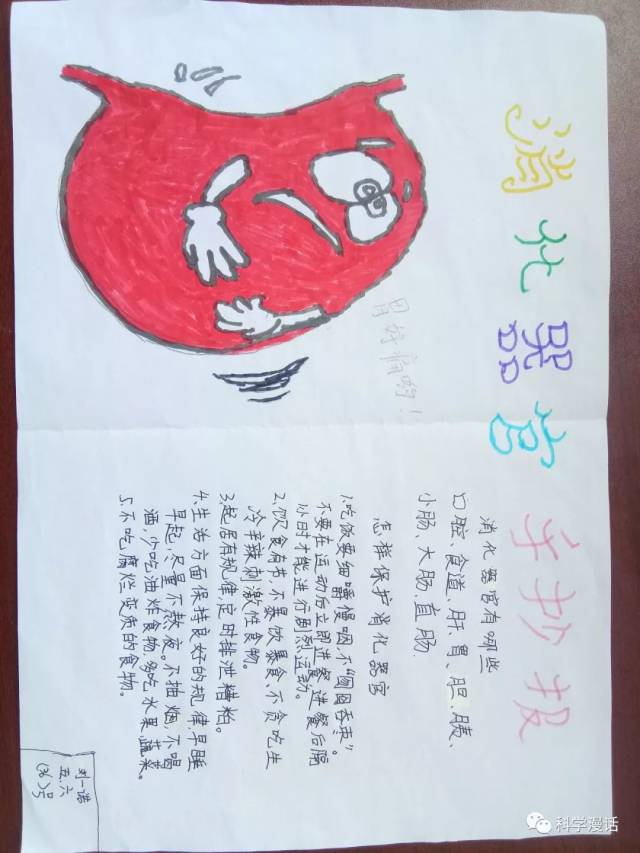 消化器官手抄报
胃好痛哟!
消化器官有哪些
口腔、食道、肝、胃、胆、胰、
小肠、大肠、直肠.
怎样保护消化器官
1.吃饭要细嚼慢咽,不"囫囵吞枣"。
不要在运动后立即进餐,进餐后隔
1小时才能进行剧烈运动。
2.饮食有节不暴饮暴食,不贪吃生
冷辛辣刺激性食物。
3.起居有规律定时排泄糟粕。
4.生活方面保持良好的规律,早睡
早起,尽量不熬夜。不抽烟不喝
酒,少吃油炸食物,多吃水果蔬菜。
5.不吃腐烂变质的食物。
刘一诺
五.六
科学漫话